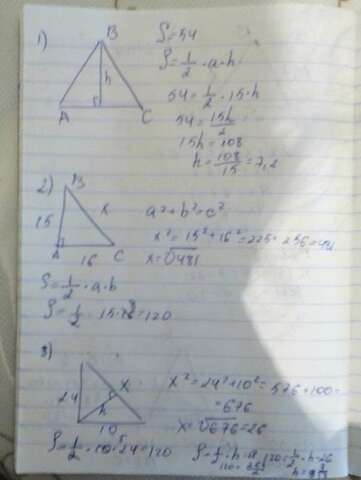 1)
B
h
A C
S=54
S=1/2·a·h
54=1/2·15·h
54=15h/2
15h=108
h=108/15=7,2
2)
B
15 x
A 16 C
a²+b²=c²
x²=15²+16²=225+256=481
x=√481
S=1/2·a·b
S=1/2·15·16=120
3)
24 h x
10
x²=24²+10²=576+100=
=676
x=√676=26
S=1/2·10·24=120
S=1/2·h·a
120=1/2·h·26